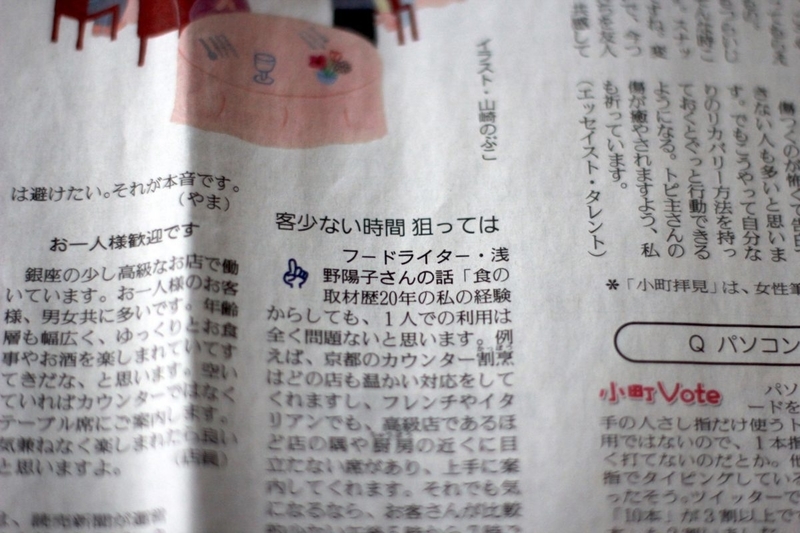 イラスト・山崎のぶこ
は避けたい。それが本音です。
（やま）
お一人様歓迎です
銀座の少し高級なお店で働
いています。お一人様のお客
様、男女共に多いです。年齢
層も幅広く、ゆっくりとお食
事やお酒を楽しまれていてす
てきだな、と思います。空い
ていればカウンターではなく
テーブル席にご案内します。
気兼ねなく楽しまれたら良い
と思いますよ。（店員）
は、読売新聞が運営
客少ない時間 狙っては
フードライター・浅
野陽子さんの話「食の
取材歴20年の私の経験
からしても、１人での利用は
全く問題ないと思います。例
えば、京都のカウンター割烹
はどの店も温かい対応をして
くれますし、フレンチやイタ
リアンでも、高級店であるほ
ど店の隅や厨房の近くに目
立たない席があり、上手に案
内してくれます。それでも気
になるなら、お客さんが比較
きない人も多いと思いま
す。でもこうやって自分な
りのリカバリー方法を持っ
ておくとぐっと行動できる
ようになる。トピ主さんの
傷が癒やされますよう、私
も祈っています。
（エッセイスト・タレント）
＊「小町拝見」は、女性筆
Q パソコン
小町Vote
パソ
ードを
手の人さし指だけ使うト
用ではないので、１本指
く打てないのだとか。他
指でタイピングしている
ったそう。ツイッターで
「10本」が３割以上で